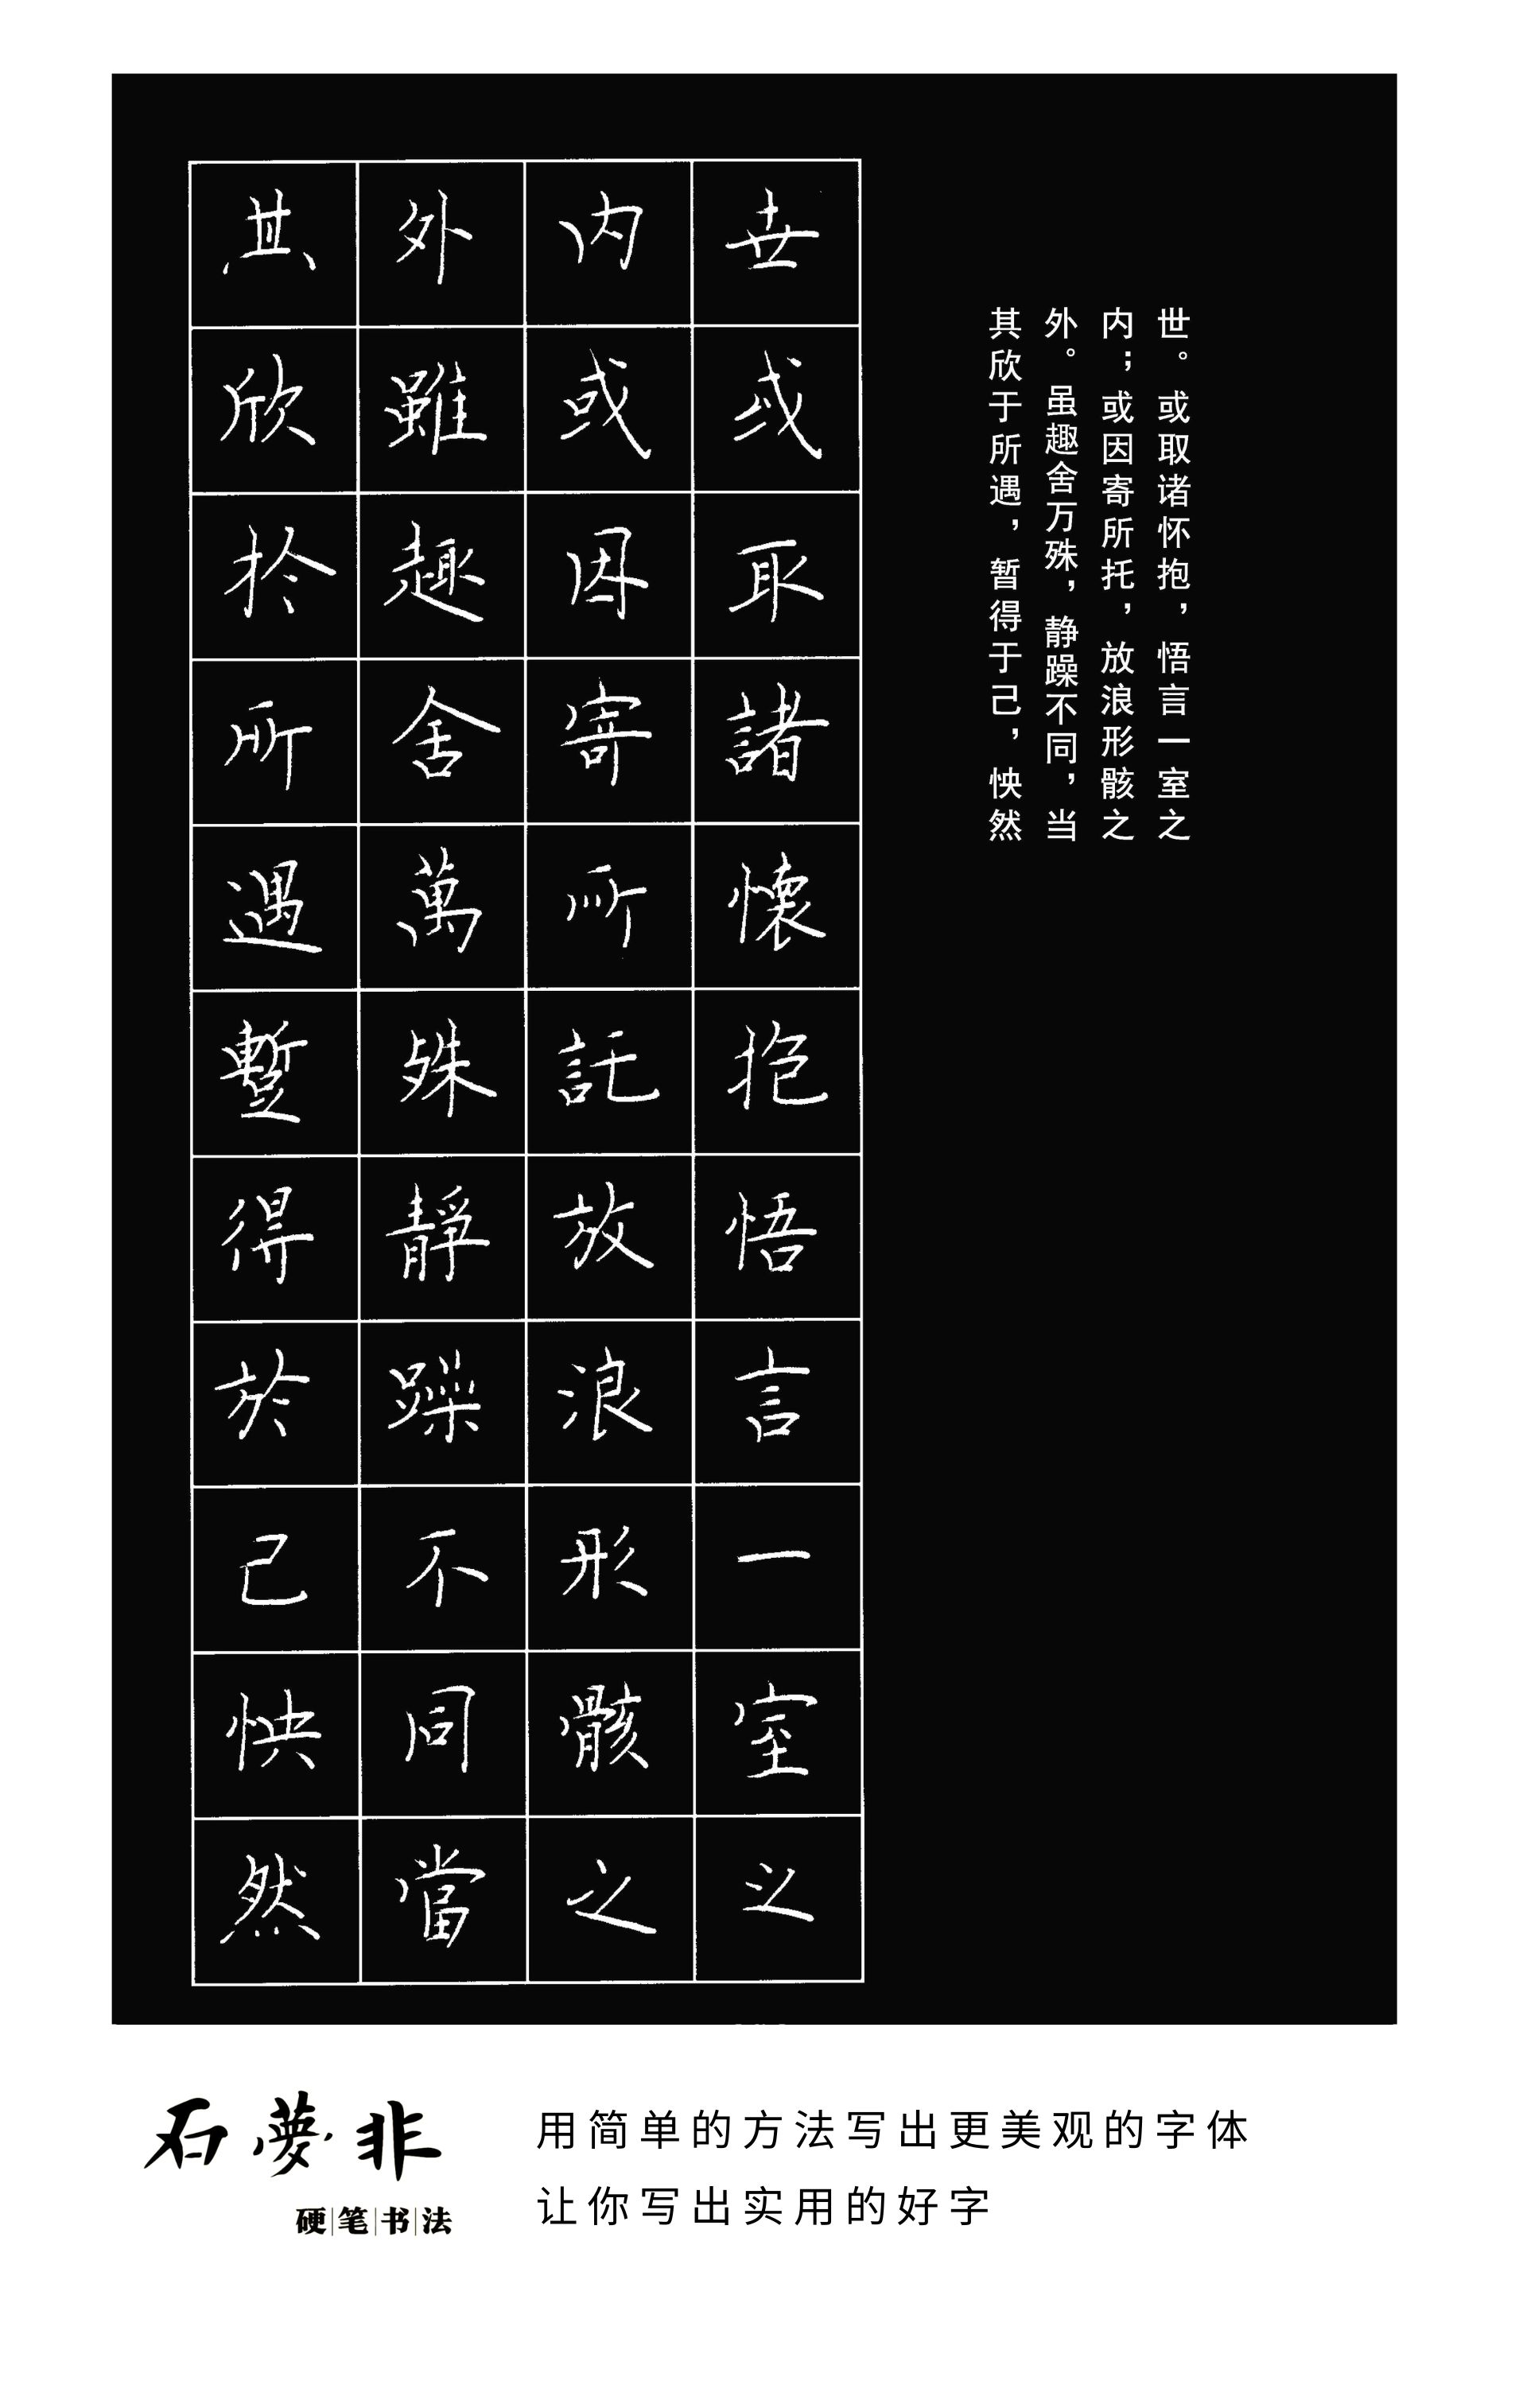 世。或取诸怀抱，悟言一室之
内；或因寄所托，放浪形骸之
外。虽趣舍万殊，静躁不同，当
其欣于所遇，暂得于己，怏然
世或取諸懷抱悟言一室之
内或因寄所託放浪形骸之
外雖趣舍萬殊靜躁不同當
其欣於所遇蹔得於己怏然
石夢非
硬笔书法
用简单的方法写出更美观的字体
让你写出实用的好字